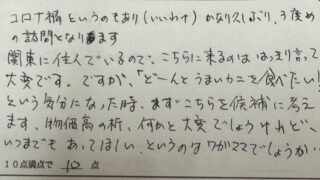 コロナ禍というのもあり（いいわけ）かなり久しぶり、3度め
の訪問となります
関東に住んでいるので、こちらに来るのははっきり言って
大変です。ですが、「ど〜んとうまいカニを食べたい！
という気分になった時、まずこちらを候補に考え
ます。物価高の折、何かと大変でしょうけれど、
いつまでもあってほしい、というのはワガママでしょうか…
10点満点で 10 点